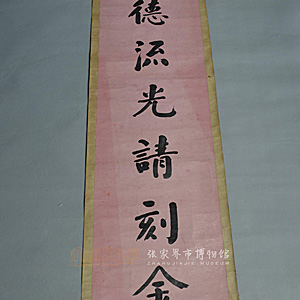 德流光請刻金
张家界市博物馆
ZHANGJIAJIE MUSEUM